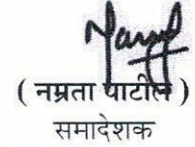 ( नम्रता पाटील )
समादेशक